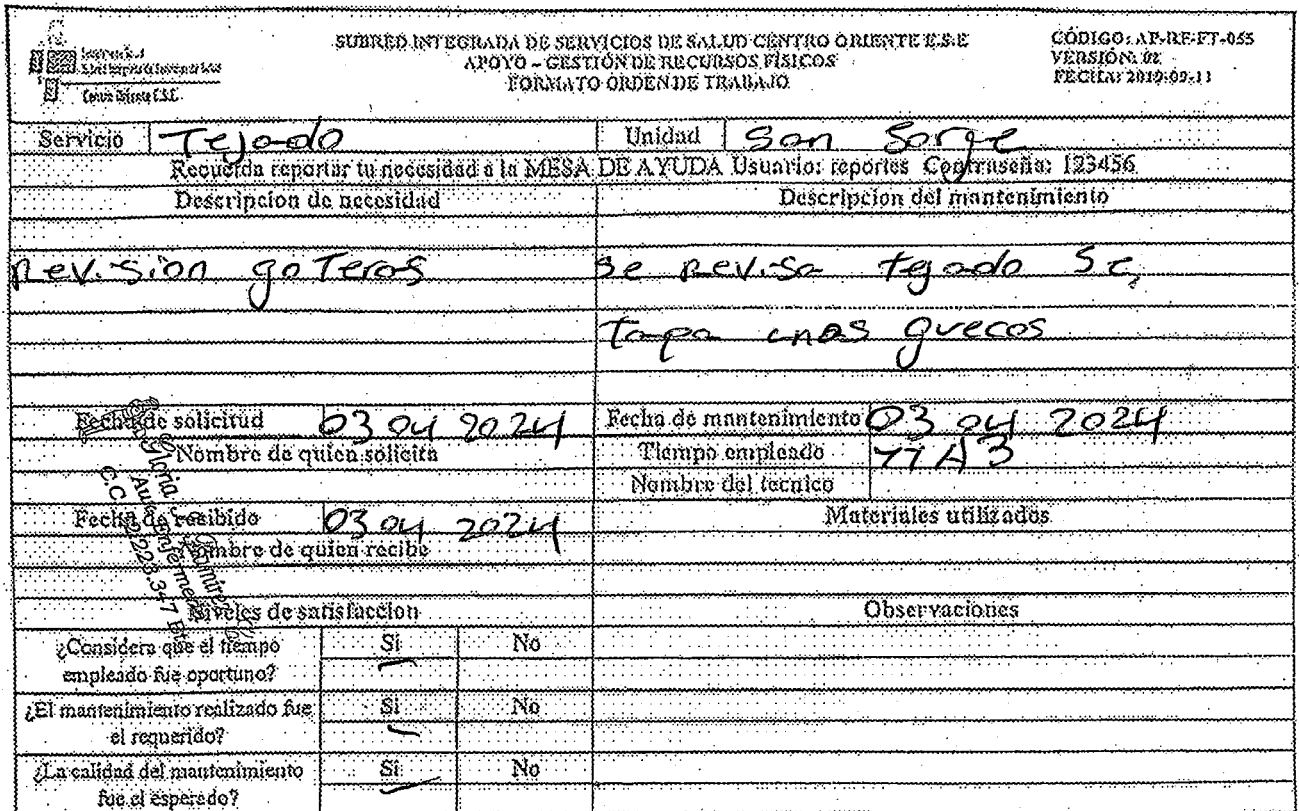 SUBRED INTEGRADA DE SERVICIOS DE SALUD CENTRO ORIENTE E.S.E
APOYO – GESTIÓN DE RECURSOS FÍSICOS
FORMATO ORDEN DE TRABAJO
CÓDIGO: AP-RF-FT-055
VERSIÓN: 02
FECHA: 2019-09-11
Servicio Tejado Unidad San Sorge
Recuerda reportar tu necesidad a la MESA DE AYUDA Usuario: reportes Contraseña: 123456
Descripcion de necesidad Descripcion del mantenimiento
revision goteras se revisa tejado Se
tapa unos guecos
Fecha de solicitud 03 04 2024 Fecha de mantenimiento 03 04 2024
Nombre de quien solicita Tiempo empleado 11 A 3
Nombre del tecnico
Fecha de recibido 03 04 2024 Materiales utilizados
Nombre de quien recibe
Gloria Ramirez
Aux. Enfermería
C.C. 223.347
Niveles de satisfaccion Observaciones
¿Considera que el tiempo empleado fue oportuno? Si No
¿El mantenimiento realizado fue el requerido? Si No
¿La calidad del mantenimiento fue el esperado? Si No